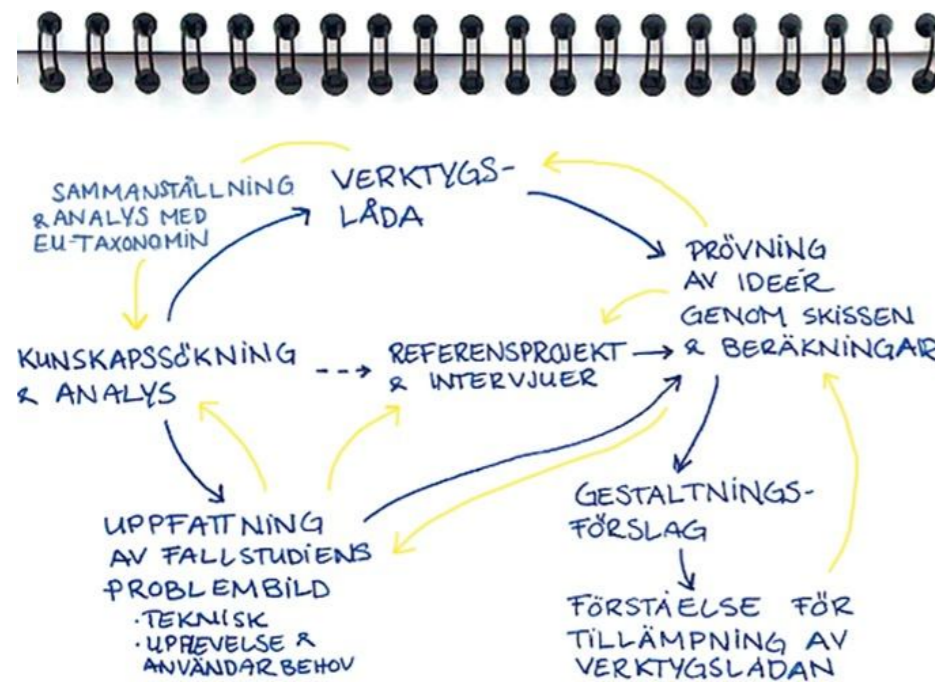 VERKTYGS-
LÅDA
SAMMANSTÄLLNING
& ANALYS MED
EU-TAXONOMIN
PRÖVNING
AV IDEÉR
GENOM SKISSEN
& BERÄKNINGAR
KUNSKAPSSÖKNING
& ANALYS
REFERENSPROJEKT
& INTERVJUER
UPPFATTNING
AV FALLSTUDIENS
PROBLEMBILD
· TEKNISK
· UPPLEVELSE &
ANVÄNDARBEHOV
GESTALTNINGS-
FÖRSLAG
FÖRSTÅELSE FÖR
TILLÄMPNING AV
VERKTYGSLÅDAN